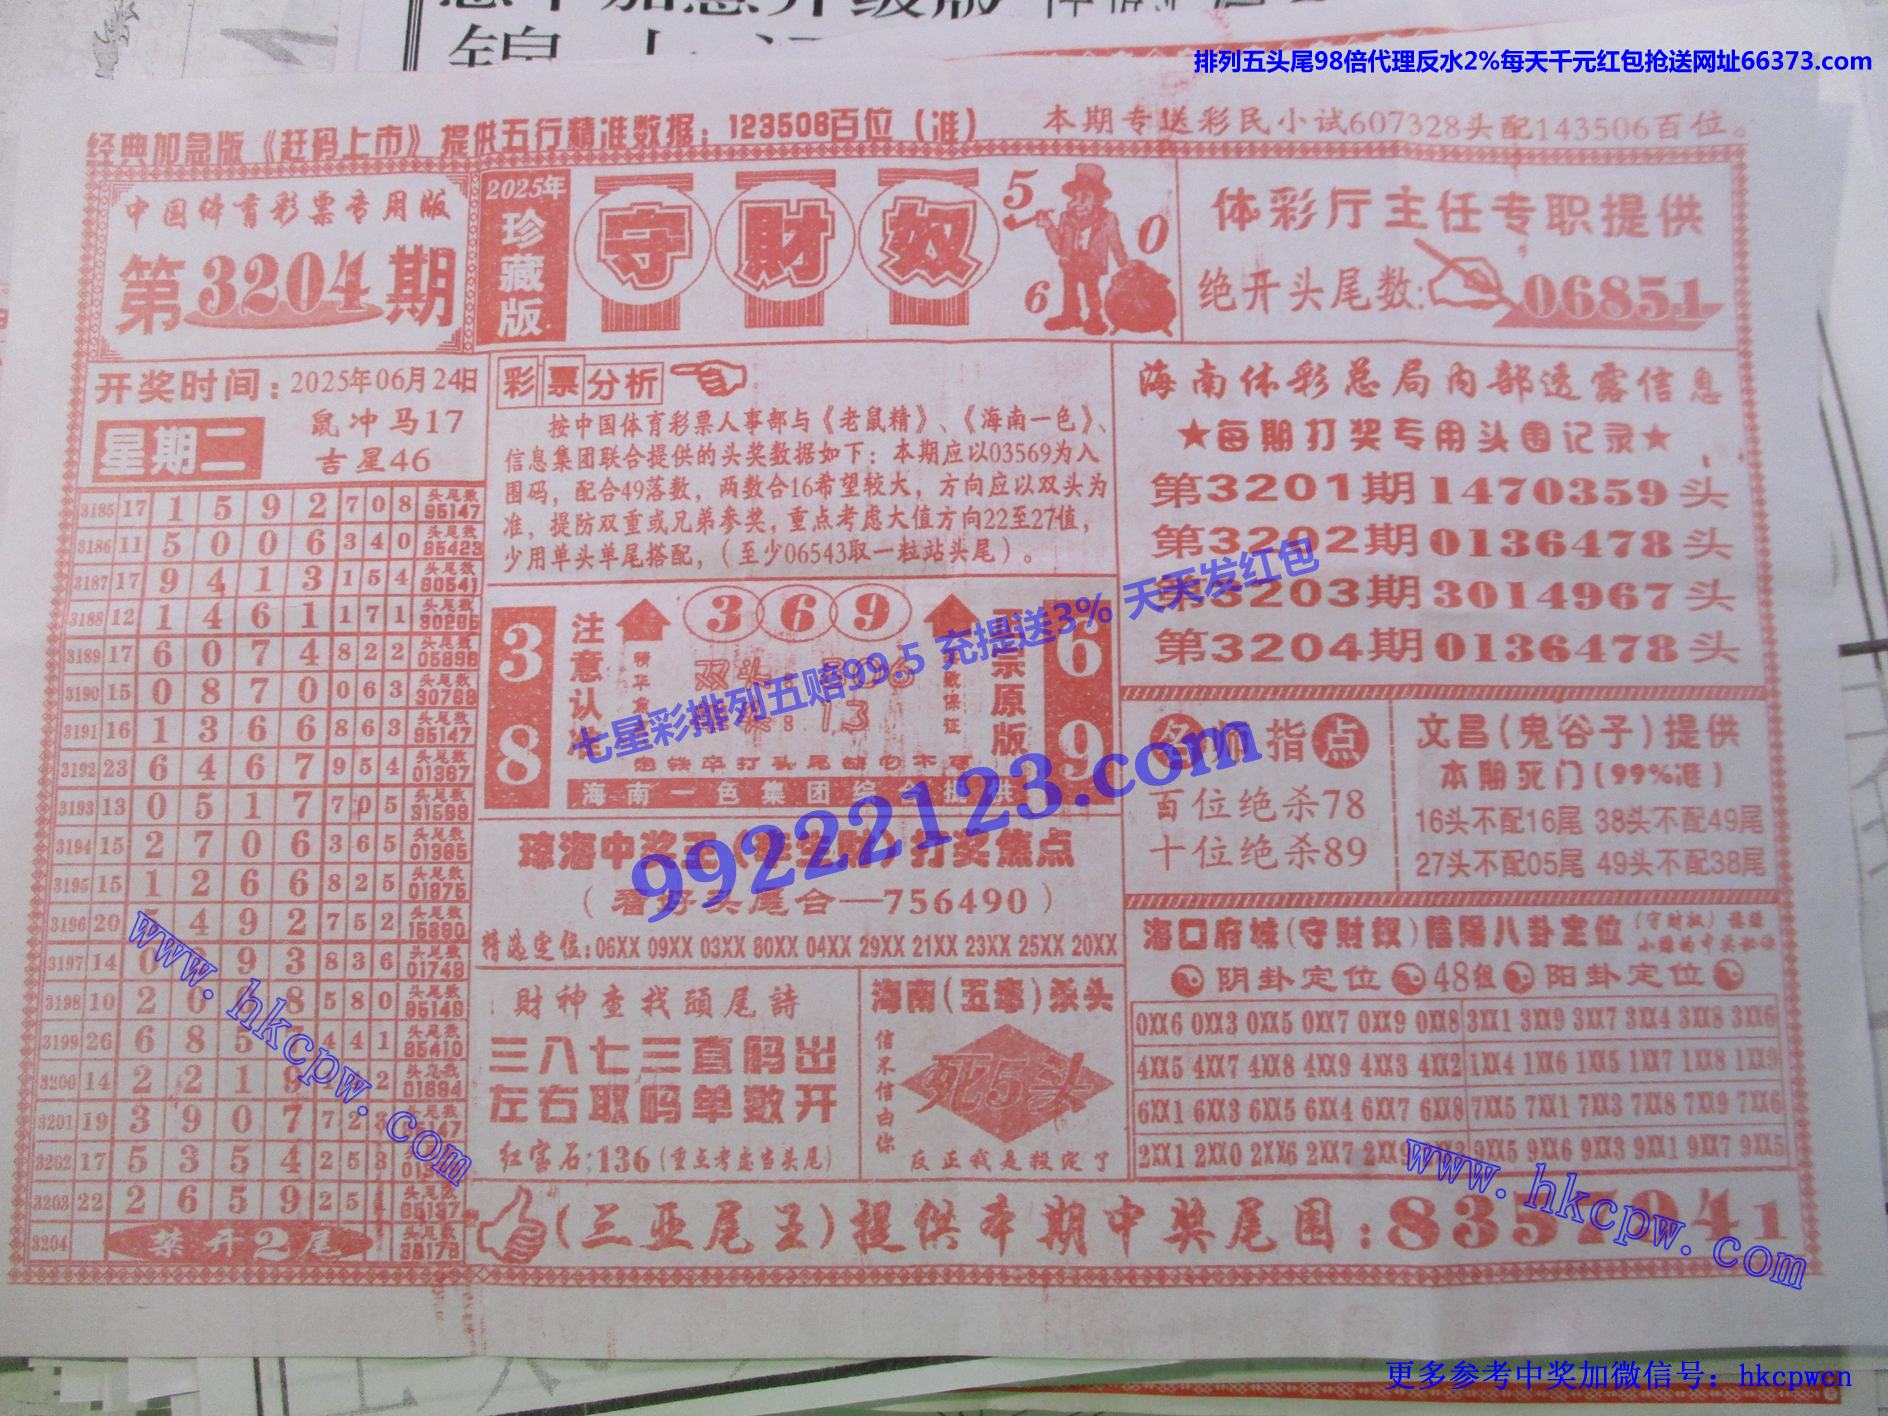 排列五头尾98倍代理反水2%每天千元红包抢送网址66373.com
经典加急版《赶码上市》提供五行精准数据：123506百位（准）
本期专送彩民小试607328头配143506百位。
中国体育彩票专用版
第3204期
2025年
珍藏版
守財奴
5
0
6
体彩厅主任专职提供
绝开头尾数:06851
开奖时间：2025年06月24日
星期二
鼠冲马17
吉星46
3185 17 1 5 9 2 7 0 8 头尾数 95147
3186 11 5 0 0 6 3 4 0 头尾数 85423
3187 17 9 4 1 3 1 5 4 头尾数 80541
3188 12 1 4 6 1 1 7 1 头尾数
3189 17 6 0 7 4 8 2 2 头尾数
3190 15 0 8 7 0 0 6 3 头尾数
3191 16 1 3 6 6 8 6 3 头尾数 95147
3192 23 6 4 6 7 9 5 4 头尾数 01367
3193 13 0 5 1 7 7 0 5 头尾数
3194 15 2 7 0 6 3 6 5 头尾数
3195 15 1 2 6 6 8 2 5 头尾数 01875
3196 20 4 9 2 7 5 2 头尾数 15890
3197 14 0 9 3 8 3 6 头尾数 01748
3198 10 2 0 8 5 8 0 头尾数
3199 26 6 8 5 4 4 1 头尾数 85410
3200 14 2 2 1 9 2 头尾数
3201 19 3 9 0 7 7 2 3 头尾数
3202 17 5 3 5 4 2 5 8 头尾数
3203 22 2 6 5 9 2 5 头尾数
3204 禁开2尾 头尾数
彩票分析
按中国体育彩票人事部与《老鼠精》、《海南一色》、
信息集团联合提供的头奖数据如下：本期应以03569为入
围码，配合49落数，两数合16希望较大，方向应以双头为
准，提防双重或兄弟参奖，重点考虑大值方向22至27值，
少用单头单尾搭配，（至少06543取一粒站头尾）。
38
注意认准
369
双头
13
原版
69
海南一色集团综合提供
琼海中奖王 打奖焦点
（看好头尾合—756490）
精选定位:06XX 09XX 03XX 80XX 04XX 29XX 21XX 23XX 25XX 20XX
財神查找頭尾詩
三八七三直码出
左右取码单数开
红宝石:136(重点考虑当头尾)
海南(五湾)杀头
信不信由你
死5头
反正我是投定了
海南体彩总局内部透露信息
★每期打奖专用头围记录★
第3201期1470359头
第3202期0136478头
第3203期3014967头
第3204期0136478头
名师指点
百位绝杀78
十位绝杀89
文昌(鬼谷子)提供
本期死门(99%准)
16头不配16尾 38头不配49尾
27头不配05尾 49头不配38尾
海口府城(守财奴)阴阳八卦定位
阴卦定位 48组 阳卦定位
0XX6 0XX3 0XX5 0XX7 0XX9 0XX8 3XX1 3XX9 3XX7 3XX4 3XX8 3XX6
4XX5 4XX7 4XX8 4XX9 4XX3 4XX2 1XX4 1XX6 1XX5 1XX7 1XX8 1XX9
6XX1 6XX3 6XX5 6XX4 6XX7 6XX8 7XX5 7XX1 7XX3 7XX8 7XX9 7XX6
2XX1 2XX0 2XX6 2XX7 2XX9 9XX5 9XX6 9XX3 9XX1 9XX7 9XX5
(三亚尾王)提供本期中奖尾围:8357941
七星彩排列五赔99.5 充提送3% 天天发红包
99222123.com
www.hkcpw.com
www.hkcpw.com
更多参考中奖加微信号：hkcpwcn